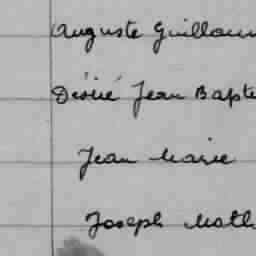 Auguste Guillaum
Désiré Jean Bapte
Jean Marie
Joseph Math